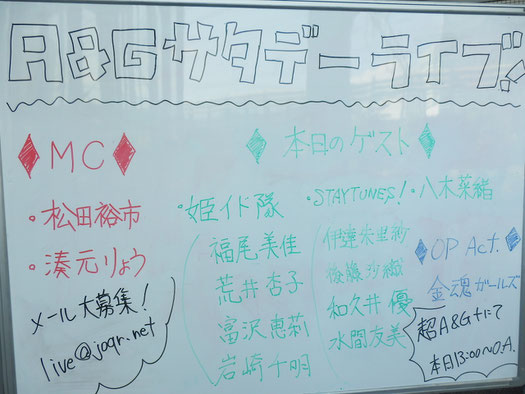 A&Gサタデーライブ!
MC
・松田裕市
・湊元りょう
メール大募集!
live@joqr.net
本日のゲスト
・姫イド隊
福尾美佳
荒井杏子
富沢恵莉
岩崎千明
・STAYTUNES!
伊達朱里紗
後藤沙織
和久井優
水間友美
・八木菜緒
OP Act.
金魂ガールズ
超A&G+にて
本日13:00〜O.A.